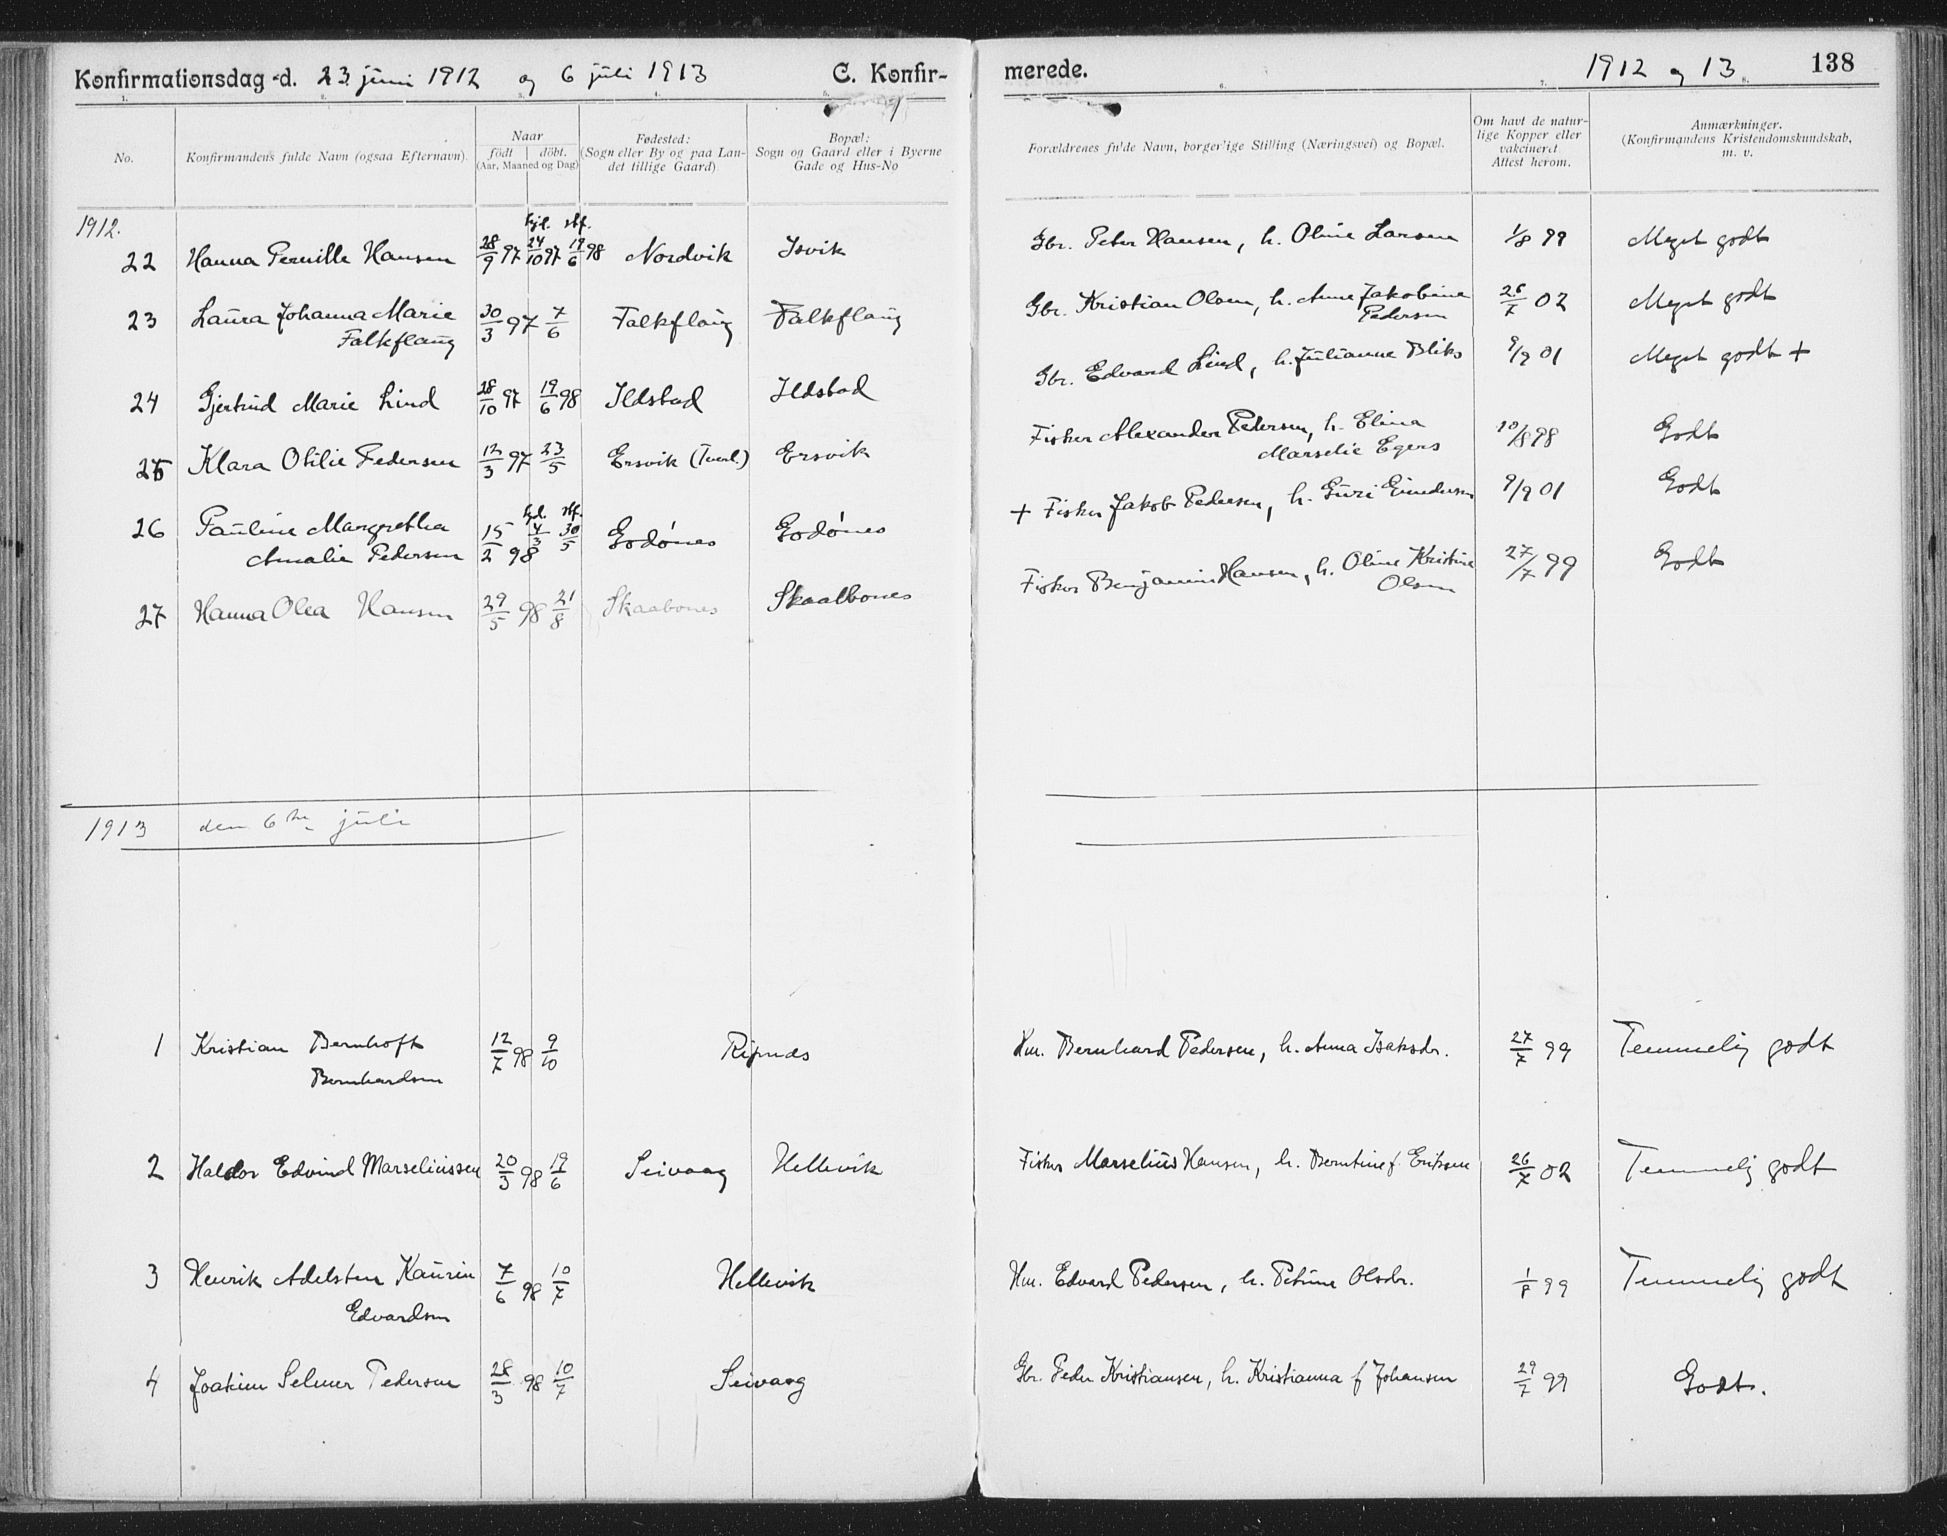 Konfirmationsdag d. 23 juni 1912 og 6 juli 1913 C. Konfir-
merede. 1912 og 13 138
1. 2. 3. 4. 5. 6. 7. 8.
No.
Konfirmandens fulde Navn (ogsaa Efternavn).
Naar
født | döbt.
(Aar, Maaned og Dag)
Fødested:
(Sogn eller By og paa Lan-
det tillige Gaard)
Bopæl:
Sogn og Gaard eller i Byerne
Gade og Hus-No
Forældrenes fulde Navn, borgerlige Stilling (Næringsvei) og Bopæl.
Om havt de natur-
lige Kopper eller
vakcineret
Attest herom.
Anmærkninger.
(Konfirmandens Kristendomskundskab,
m. v.
1912.
22 Hanna Pernille Hansen 28/9 97 hjd. 24/10 97 stf. 19/6 98 Nordvik Isvik Gbr. Peter Hansen, h. Oline Larsen 1/8 99 Meget godt
23 Laura Johanna Marie 30/3 97 7/6 Falkflaug Falkflaug Gbr. Kristian Olsen, h. Anne Jakobine 26/7 02 Meget godt
Falkflaug Pedersen
24 Gjertrud Marie Lind 28/10 97 19/6 98 Ildstad Ildstad Gbr. Edvard Lind, h. Julianne Bliks 9/9 01 Meget godt +
25 Klara Otilie Pedersen 12/3 97 23/5 Ersvik (Tverl.) Ersvik Fisker Alexander Pedersen, h. Elina 10/8 98 Godt
Marselie Egers
26 Pauline Margretha 15/2 98 hjd. 4/3 stf. 30/5 Godønes Godønes + Fisker Jakob Pedersen, h. Guri Enundersen 9/9 01 Godt
Amalie Pedersen
27 Hanna Olea Hansen 29/5 98 21/8 Skaabones Skaalbones Fisker Benjamin Hansen, h. Oline Kristine 27/7 99 Godt
Olsen
1913 den 6te juli
1 Kristian Bernhoft 12/7 98 9/10 Ripnes Hm. Bernhard Pedersen, h. Anna Isaksdr. 27/7 99 Temmelig godt
Bernhardsen
2 Haldor Edvind Marseliussen 20/3 98 19/6 Seivaag Hellevik Fisker Marselius Hansen, h. Berntine f. Eriksen 26/7 02 Temmelig godt
3 Henrik Adelsten Kaurin 7/6 98 10/7 Hellevik Hm. Edvard Pedersen, h. Petrine Olsdr. 1/8 99 Temmelig godt
Edvardsen
4 Joakim Selmer Pedersen 28/3 98 10/7 Seivaag Gbr. Peder Kristiansen, h. Kristianna f Johansen 29/7 99 Godt.